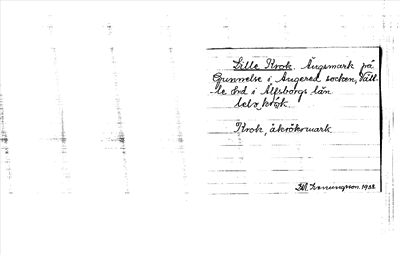 Lille Krok. Ängsmark på
Gunnelse i Angered socken, Vätt-
le hd i Älfsborgs län
krok
Krok, åkröksmark
1938